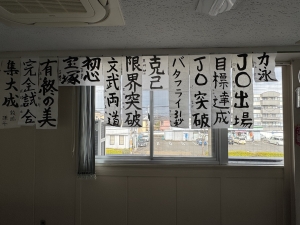 力泳
JO出場
目標達成
JO突破
バタフライ
克己
限界突破
文武両道
初心
宝塚
有終の美
完全試合
集大成